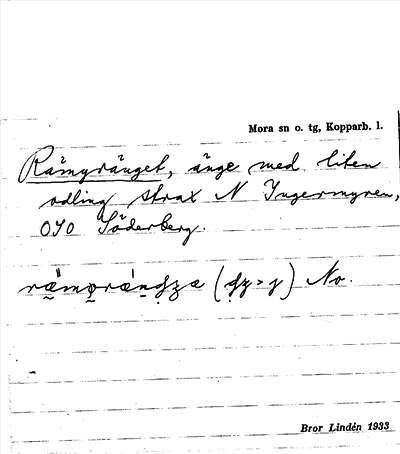 Mora sn o. tg, Kopparb. l.
Rämyränget, änge med liten
odling strax N Ingermyren,
OSO Söderberg.
No.
Bror Lindén 1933